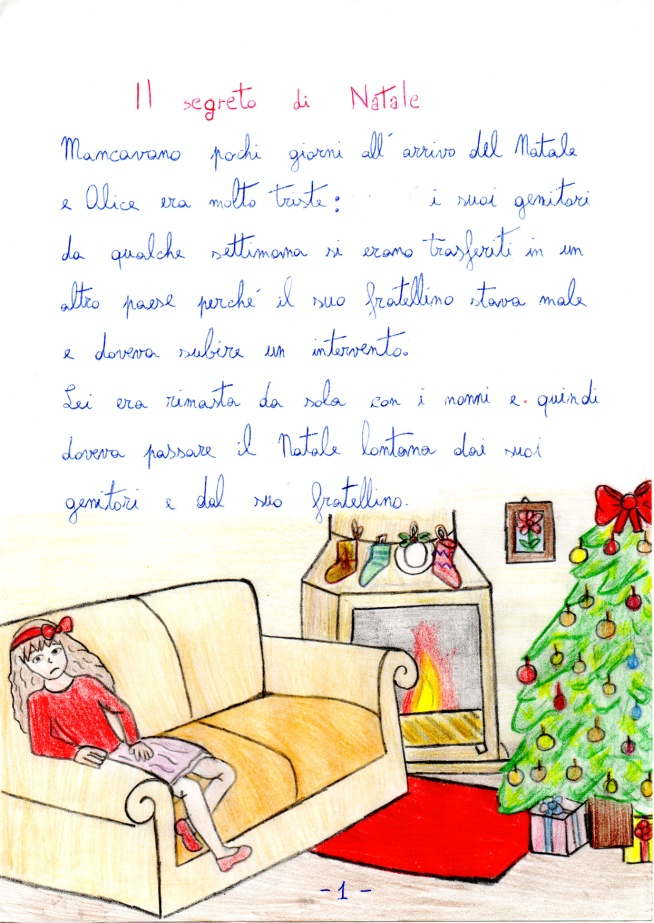 Il segreto di Natale
Mancavano pochi giorni all'arrivo del Natale
e Alice era molto triste: i suoi genitori
da qualche settimana si erano trasferiti in un
altro paese perché il suo fratellino stava male
e doveva subire un intervento.
Lei era rimasta da sola con i nonni e quindi
doveva passare il Natale lontana dai suoi
genitori e dal suo fratellino.
- 1 -